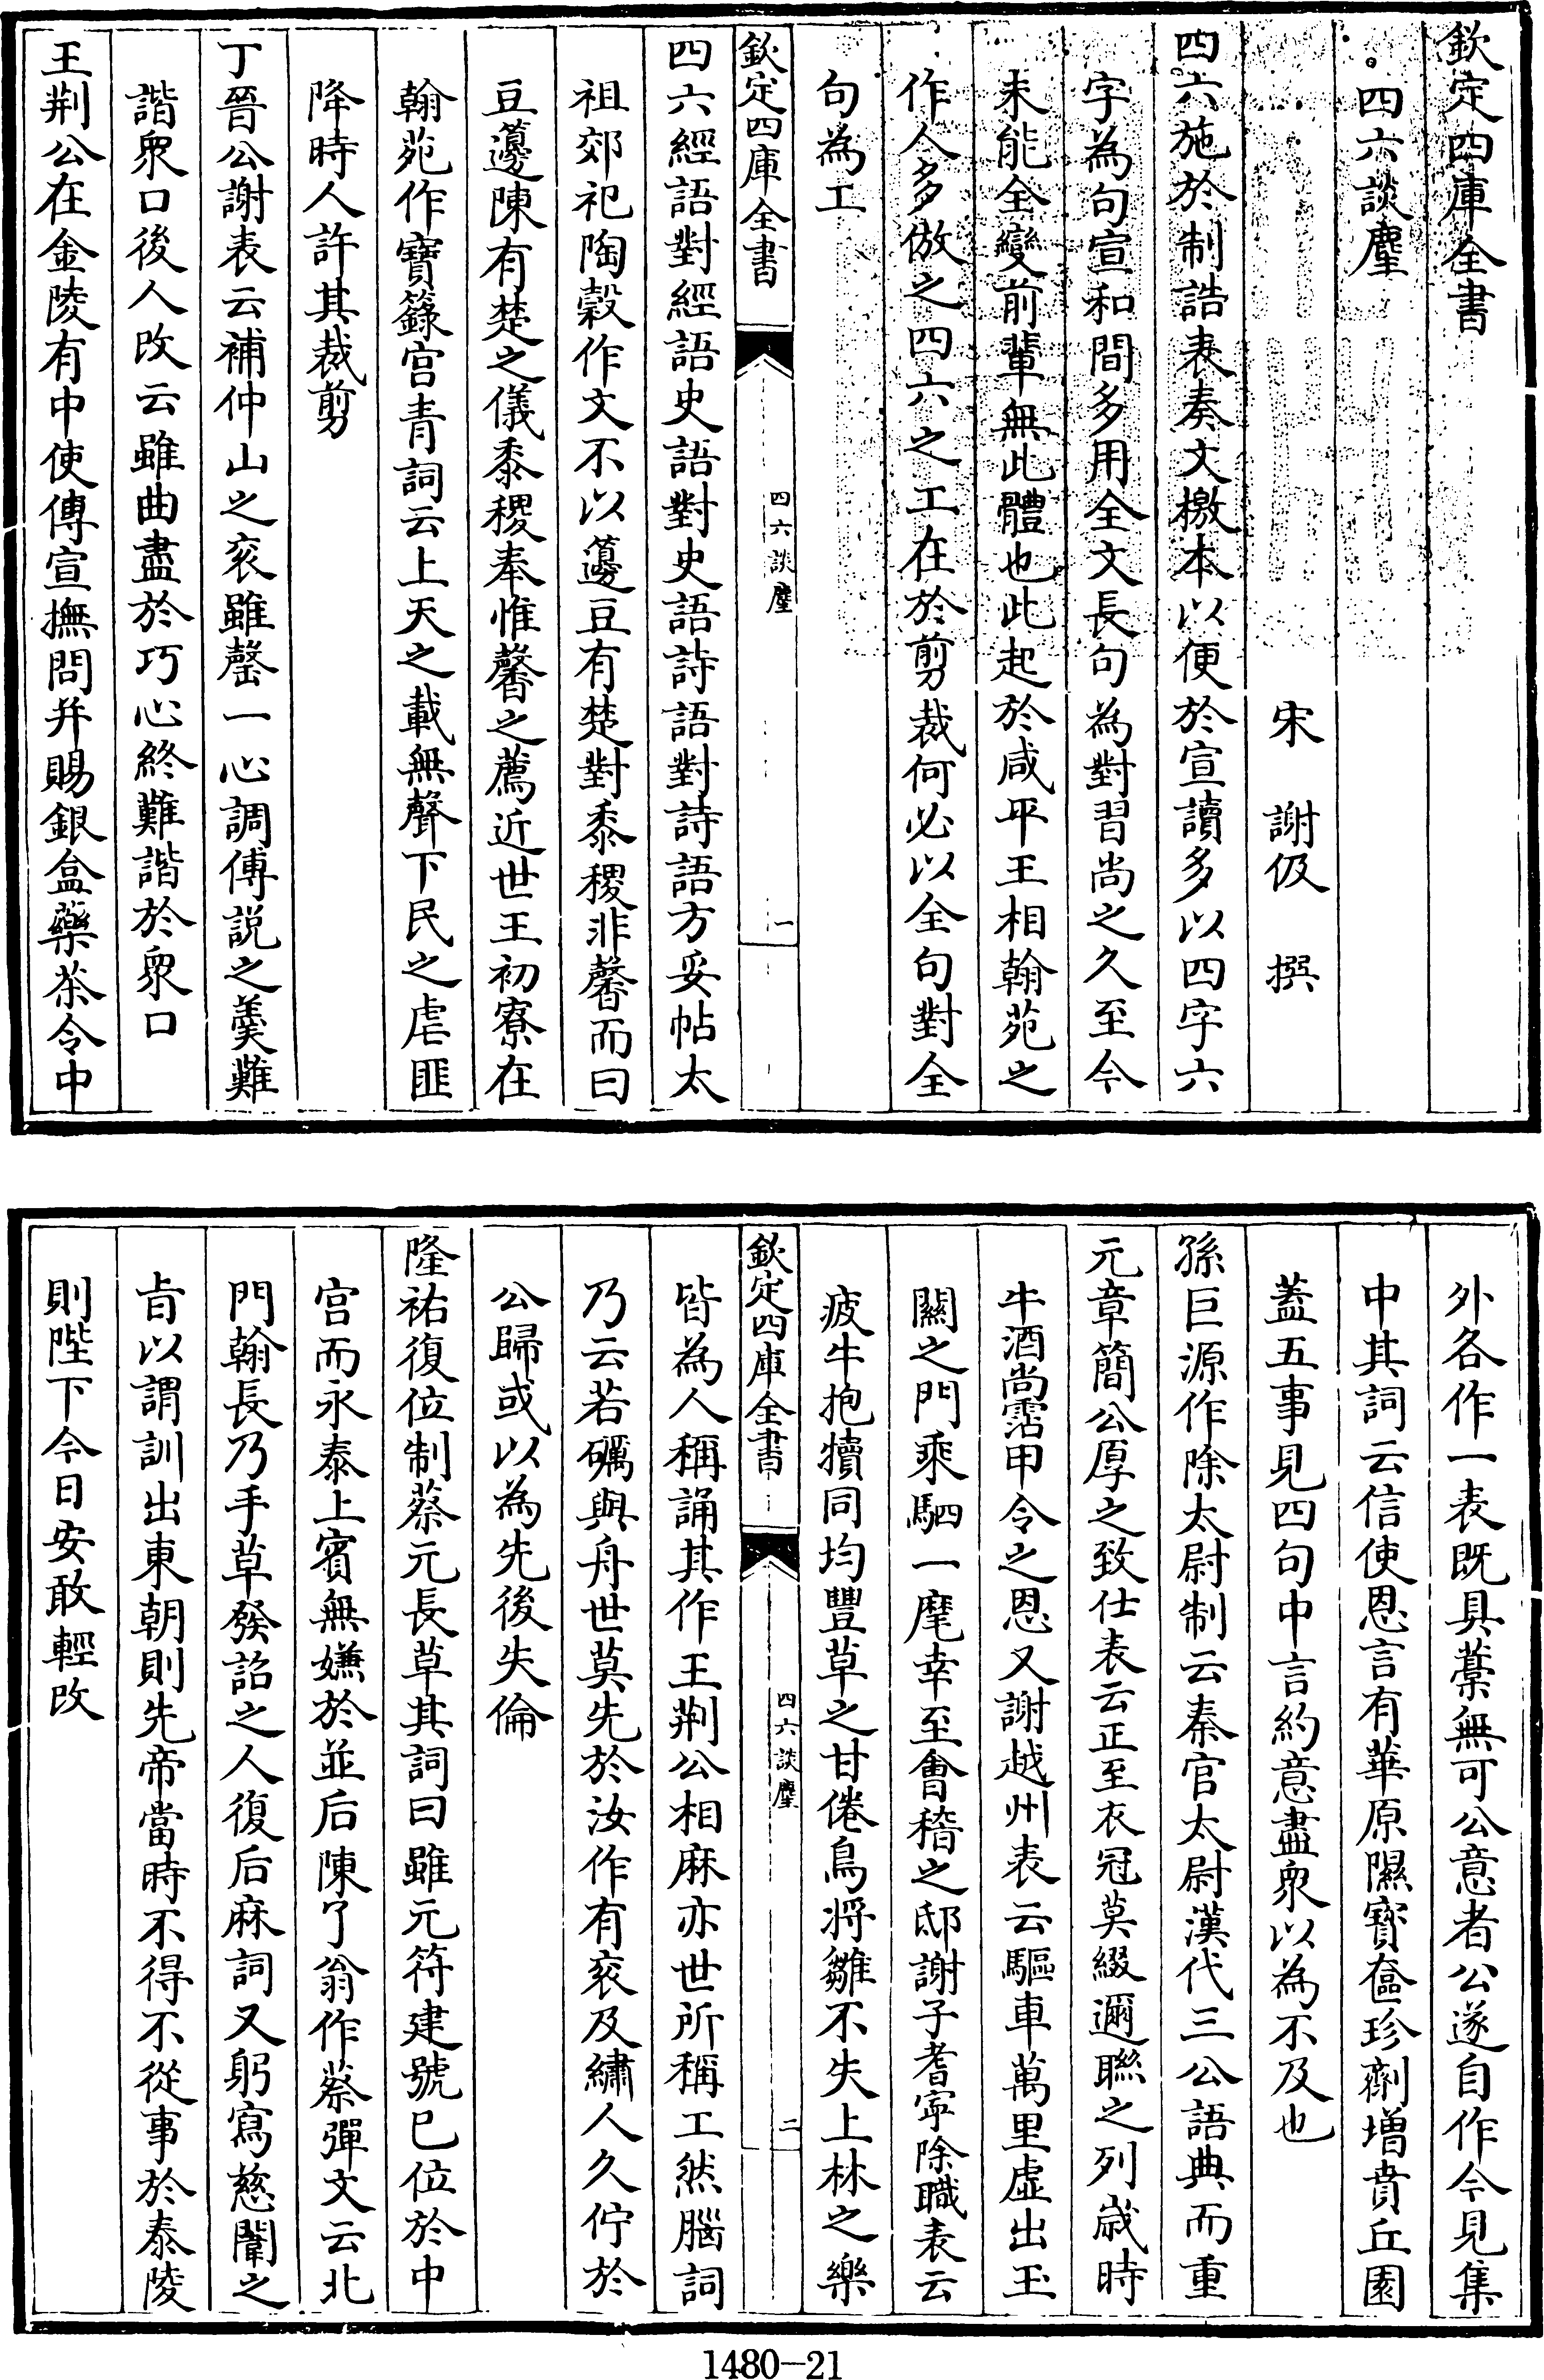 欽定四庫全書
四六談麈
宋　謝伋　撰
四六施於制誥表奏文檄本以便於宣讀多以四字六
字為句宣和間多用全文長句為對習尚之久至今
未能全變前輩無此體也此起於咸平王相翰苑之
作人多倣之四六之工在於剪裁何必以全句對全
句為工
欽定四庫全書
四六談麈
一
四六經語對經語史語對史語詩語對詩語方妥帖太
祖郊祀陶穀作文不以籩豆有楚對黍稷非馨而曰
豆籩陳有楚之儀黍稷奉惟馨之薦近世王初寮在
翰苑作寶籙宮青詞云上天之載無聲下民之虐匪
降時人許其裁剪
丁晉公謝表云補仲山之衮雖罄一心調傅説之羹難
諧衆口後人改云雖曲盡於巧心終難諧於衆口
王荆公在金陵有中使傳宣撫問并賜銀盒藥茶令中
外各作一表既具藁無可公意者公遂自作今見集
中其詞云信使恩言有華原隰寳奩珍劑増賁丘園
蓋五事見四句中言約意盡衆以為不及也
孫巨源作除太尉制云秦官太尉漢代三公語典而重
元章簡公厚之致仕表云正至衣冠莫綴邇聯之列嵗時
牛酒尚霑甲令之恩又謝越州表云驅車萬里虛出玉
關之門乘駟一麾幸至會稽之邸謝子耆寧除職表云
疲牛抱犢同均豐草之甘倦鳥將雛不失上林之樂
欽定四庫全書
四六談麈
二
皆為人稱誦其作王荆公相麻亦世所稱工然腦詞
乃云若礪與舟世莫先於汝作有衮及繡人久佇於
公歸或以為先後失倫
隆祐復位制蔡元長草其詞曰雖元符建號已位於中
宮而永泰上賓無嫌於並后陳了翁作蔡彈文云北
門翰長乃手草發詔之人復后麻詞又躬寫慈闈之
旨以謂訓出東朝則先帝當時不得不從事於泰陵
則陛下今日安敢輕改
1480—21